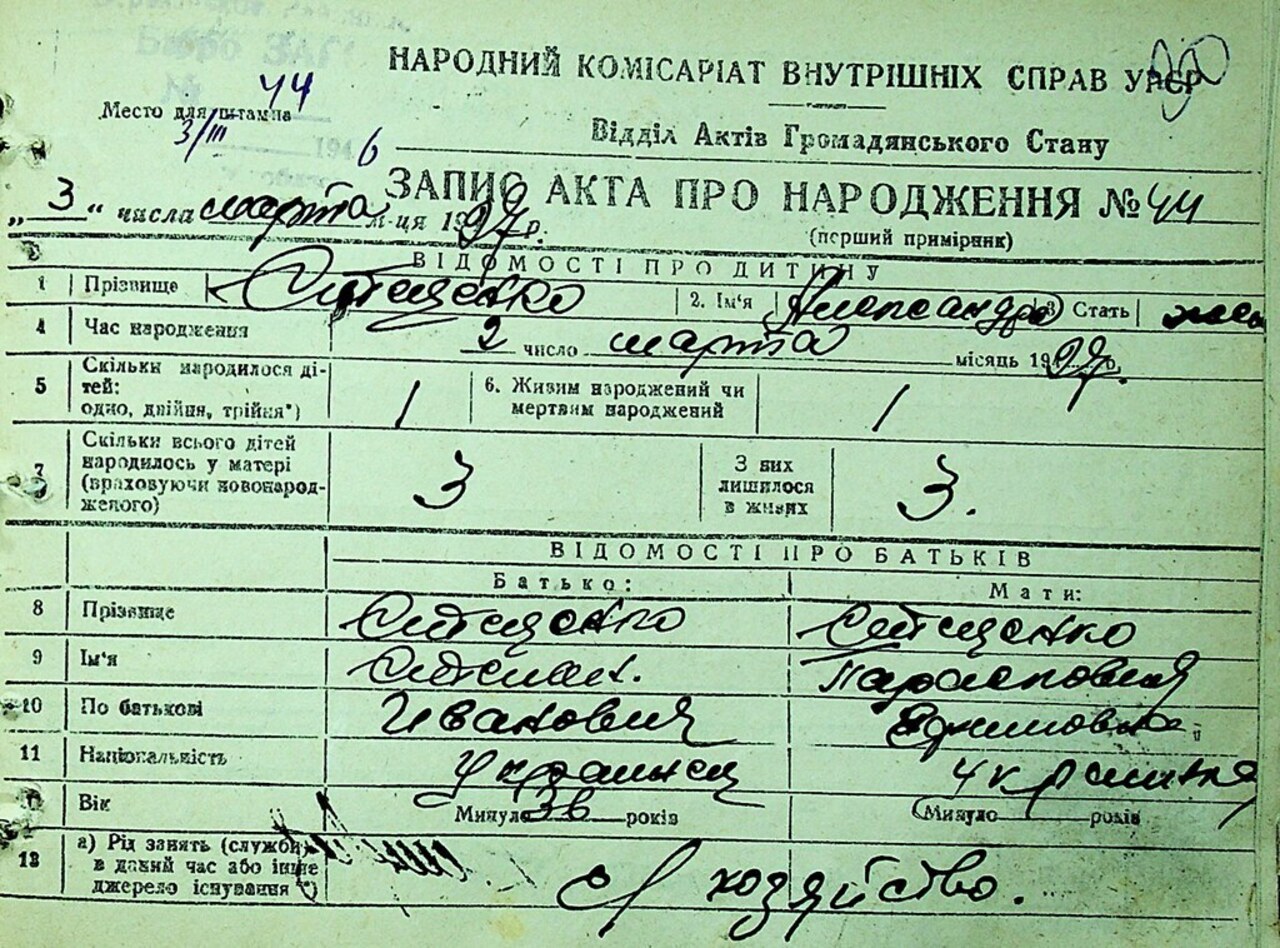 НАРОДНИЙ КОМІСАРІАТ ВНУТРІШНІХ СПРАВ УРСР
Место для штампа 44
3/III 1946
Відділ Актів Громадянського Стану
ЗАПИС АКТА ПРО НАРОДЖЕННЯ № 44
„3“ числа марта м-ця 1927р.
(перший примірник)
ВІДОМОСТІ ПРО ДИТИНУ
1 Прізвище 2. Ім'я Александра 3 Стать жен
4 Час народження 2 число марта місяць 1927р.
5 Скільки народилося ді-
тей:
одно, двійня, трійня*) 1
6. Живим народжений чи
мертвим народжений 1
7 Скільки всього дітей
народилось у матері
(враховуючи новонарод-
женого) 3
З них
лишилося
в живих 3.
ВІДОМОСТІ ПРО БАТЬКІВ
Батько: Мати:
8 Прізвище
9 Ім'я
10 По батькові Иванович Ефимовна
11 Національність Украинец Украинка
Вік Минуло 36 років Минуло років
13 а) Рід занять (служби)
в даний час або інше
джерело існування *) с/хозяйство.